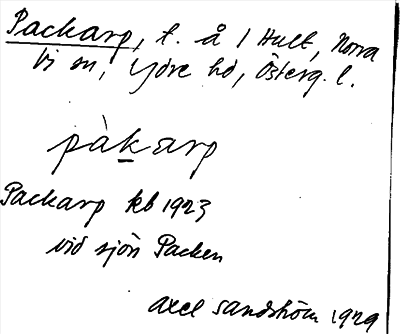 Packarp, t. å 1 Hult, Norra
Vi sn, Ydre hd, Österg. l.
pàkarp
Packarp kb 1923
vid sjön Packen
Axel Sandström 1929